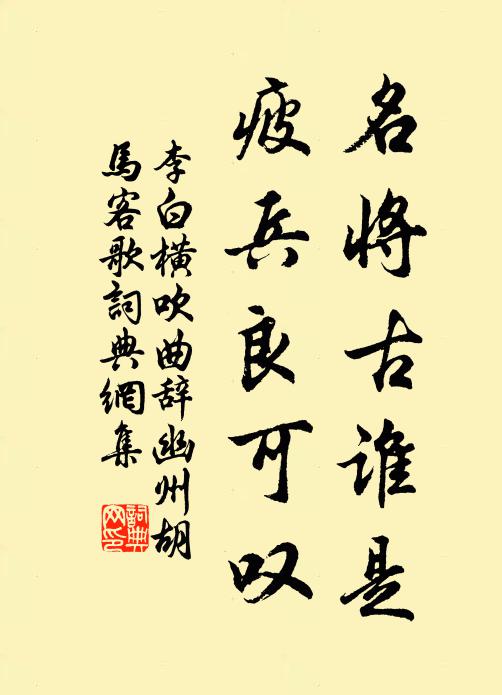 名将古谁是
疲兵良可叹
李白横吹曲辞幽州胡
馬客歌詞典網集
詞典
网印